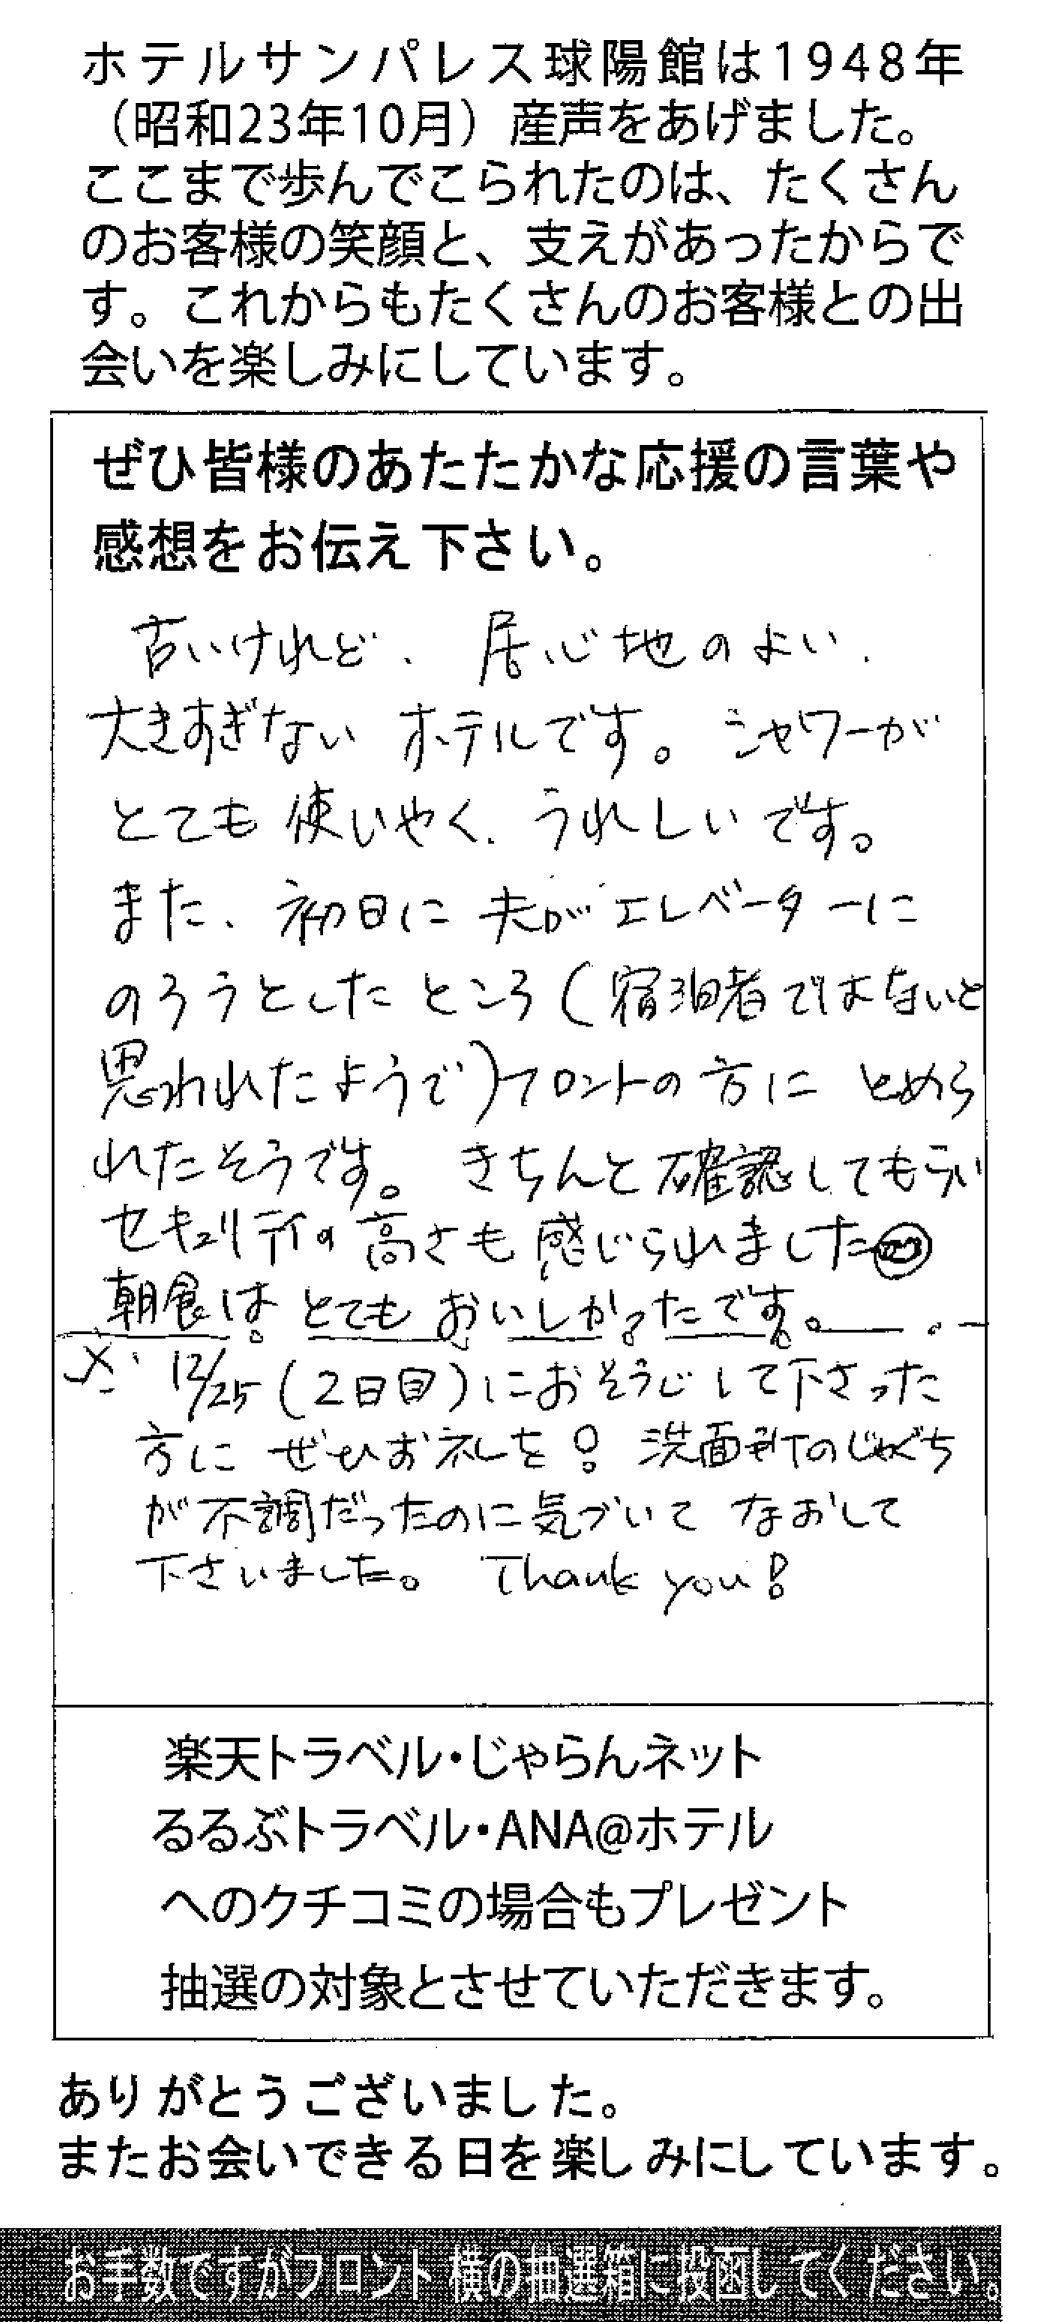 ホテルサンパレス球陽館は1948年
（昭和23年10月）産声をあげました。
ここまで歩んでこられたのは、たくさん
のお客様の笑顔と、支えがあったからで
す。これからもたくさんのお客様との出
会いを楽しみにしています。
ぜひ皆様のあたたかな応援の言葉や
感想をお伝え下さい。
古いけれど、居心地のよい、
大きすぎない ホテルです。シャワーが
とても使いやく、うれしいです。
また、初日に夫がエレベーターに
のろうとしたところ（宿泊者ではないと
思われたようで）フロントの方に とめら
れたそうです。きちんと確認してもらい
セキュリティの高さも感じられました
朝食は とても おいしかったです。
※ 12/25（2日目）におそうじして下さった
方に ぜひお礼を！洗面所のじゃぐち
が不調だったのに気づいて なおして
下さいました。 Thank you!
楽天トラベル・じゃらんネット
るるぶトラベル・ANA@ホテル
へのクチコミの場合もプレゼント
抽選の対象とさせていただきます。
ありがとうございました。
またお会いできる日を楽しみにしています。
お手数ですがフロント横の抽選箱に投函してください。